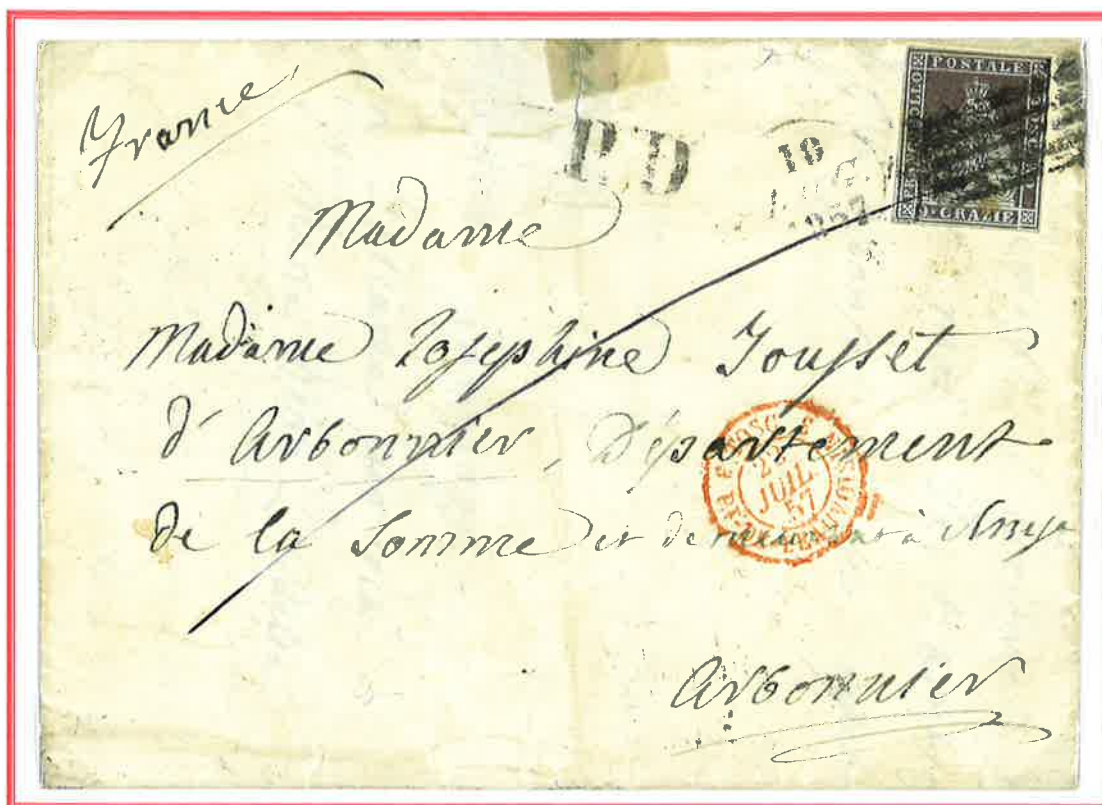 France
P.D
18
LUG
1857
BOLLO
POSTALE
9·CRAZIE
Madame
Madame Josephine Jousset
d'Arbonnier, Département
de la Somme et demeurant à
JUIL.
57
Arbonnier